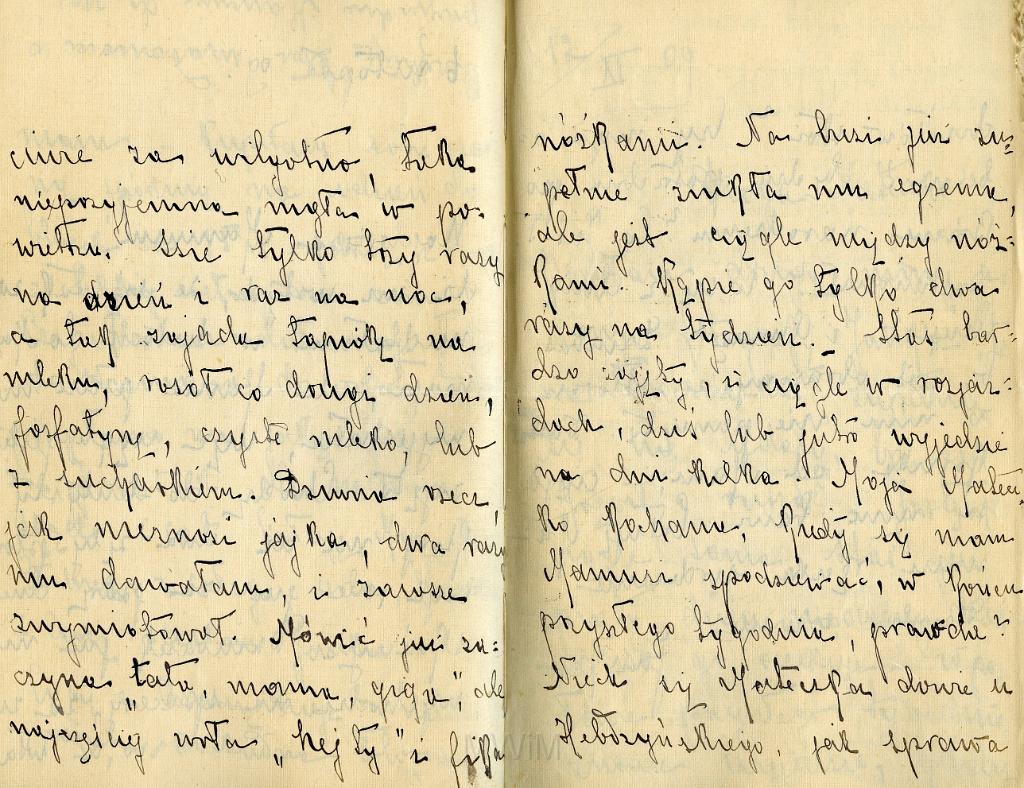 cure za wilgotno, taka
nieprzyjemna mgła w po-
wietrzu. Ssie tylko trzy razy
na dzień i raz na noc,
a tak zajada tapiok na
mleku, rosół co drugi dzień,
fosfatynę, czyste mleko, lub
z sucharkiem. Dziwna rzecz,
jak nieznosi jajka, dwa razy
mu dawałam, i zawsze
zwymiotował. Mówić już za=
czyna „tata, mama, giga", ale
najczęściej woła „hej ty" i fika
nóżkami. Na buzi już zu=
pełnie znikła mu egzema,
ale jest ciągle między nóż=
kami. Kąpię go tylko dwa
razy na tydzień. Staś bar=
dzo zajęty, i ciągle w rozjaz=
dach, dziś lub jutro wyjedzie
na dni kilka. Moja Matecz=
ko kochana, kiedy się mam
Mamusi spodziewać, w końcu
przyszłego tygodnia, prawda?
Niech się Mateczka dowie u
Hebdzyńskiego, jak sprawa